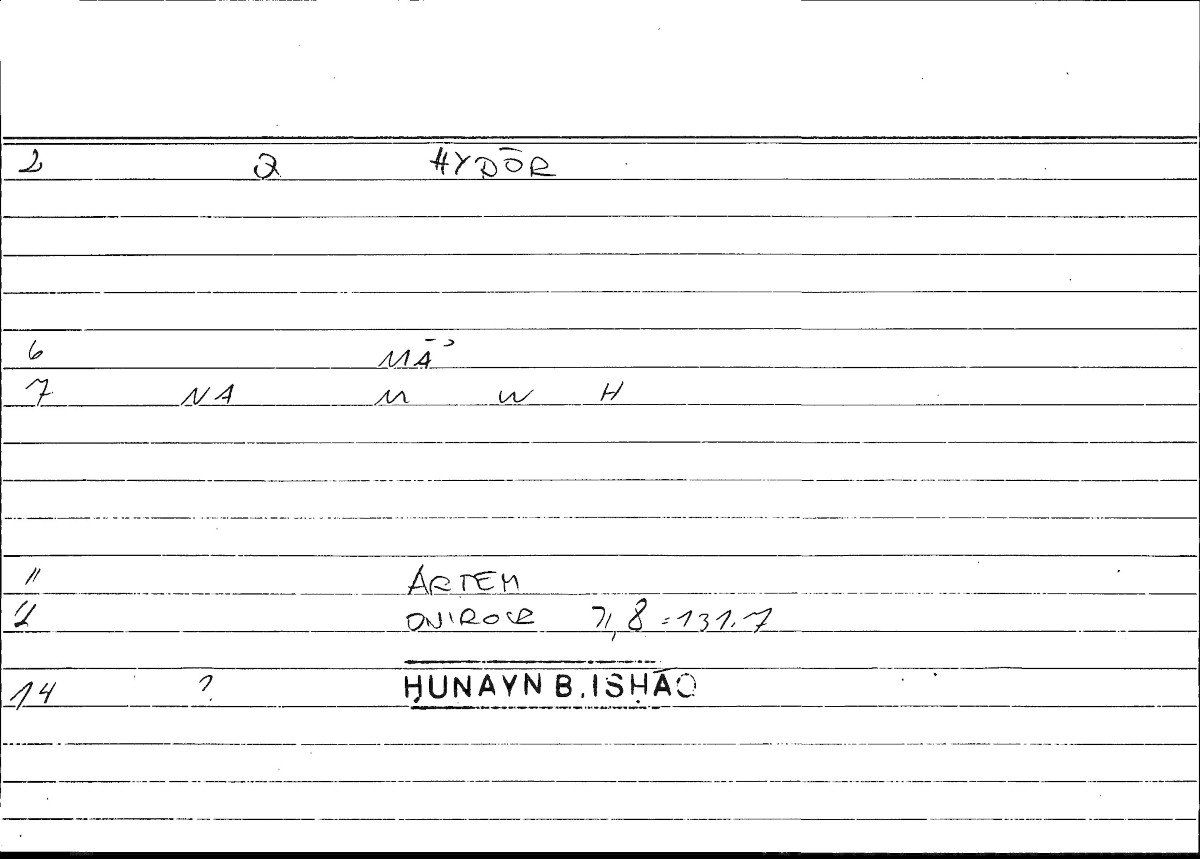 2 Q HYDŌR
6 MĀʾ
7 NA M W H
11 ARTEM
12 ONIROCR II,8=131.7
14 ? ḤUNAYN B. ISḤĀQ